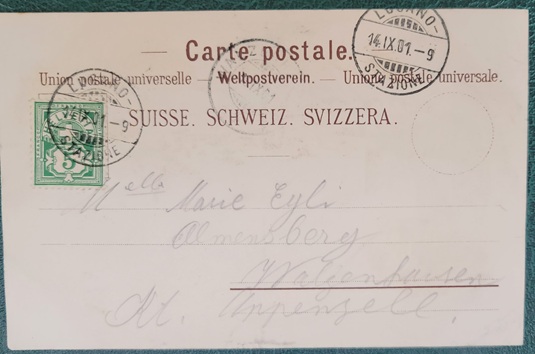 Carte postale.
Union postale universelle – Weltpostverein. – Unione postale universale.
SUISSE. SCHWEIZ. SVIZZERA.
LUGANO-
14.IX.01.-9
STAZIONE
LUGANO-
-9
STAZIONE
HELVETIA
5
Mlle Marie Egli
Almensberg
Walzenhausen
Kt. Appenzell.